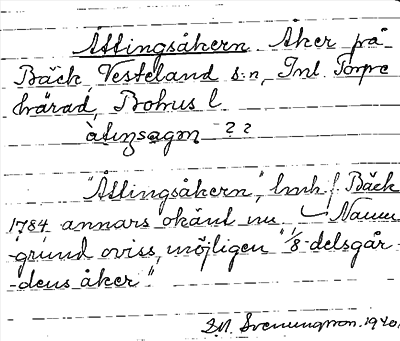 Åttingsåkern Åker på
Bäck, Vesteland s:n, Inl. Torpe
härad, Bohus l
"Åttingsåkern", lmh f. Bäck
1784 annars okänt nu Namn
grund oviss, möjligen "1/8-delsgår-
-dens åker".
Svenungsson. 1940.